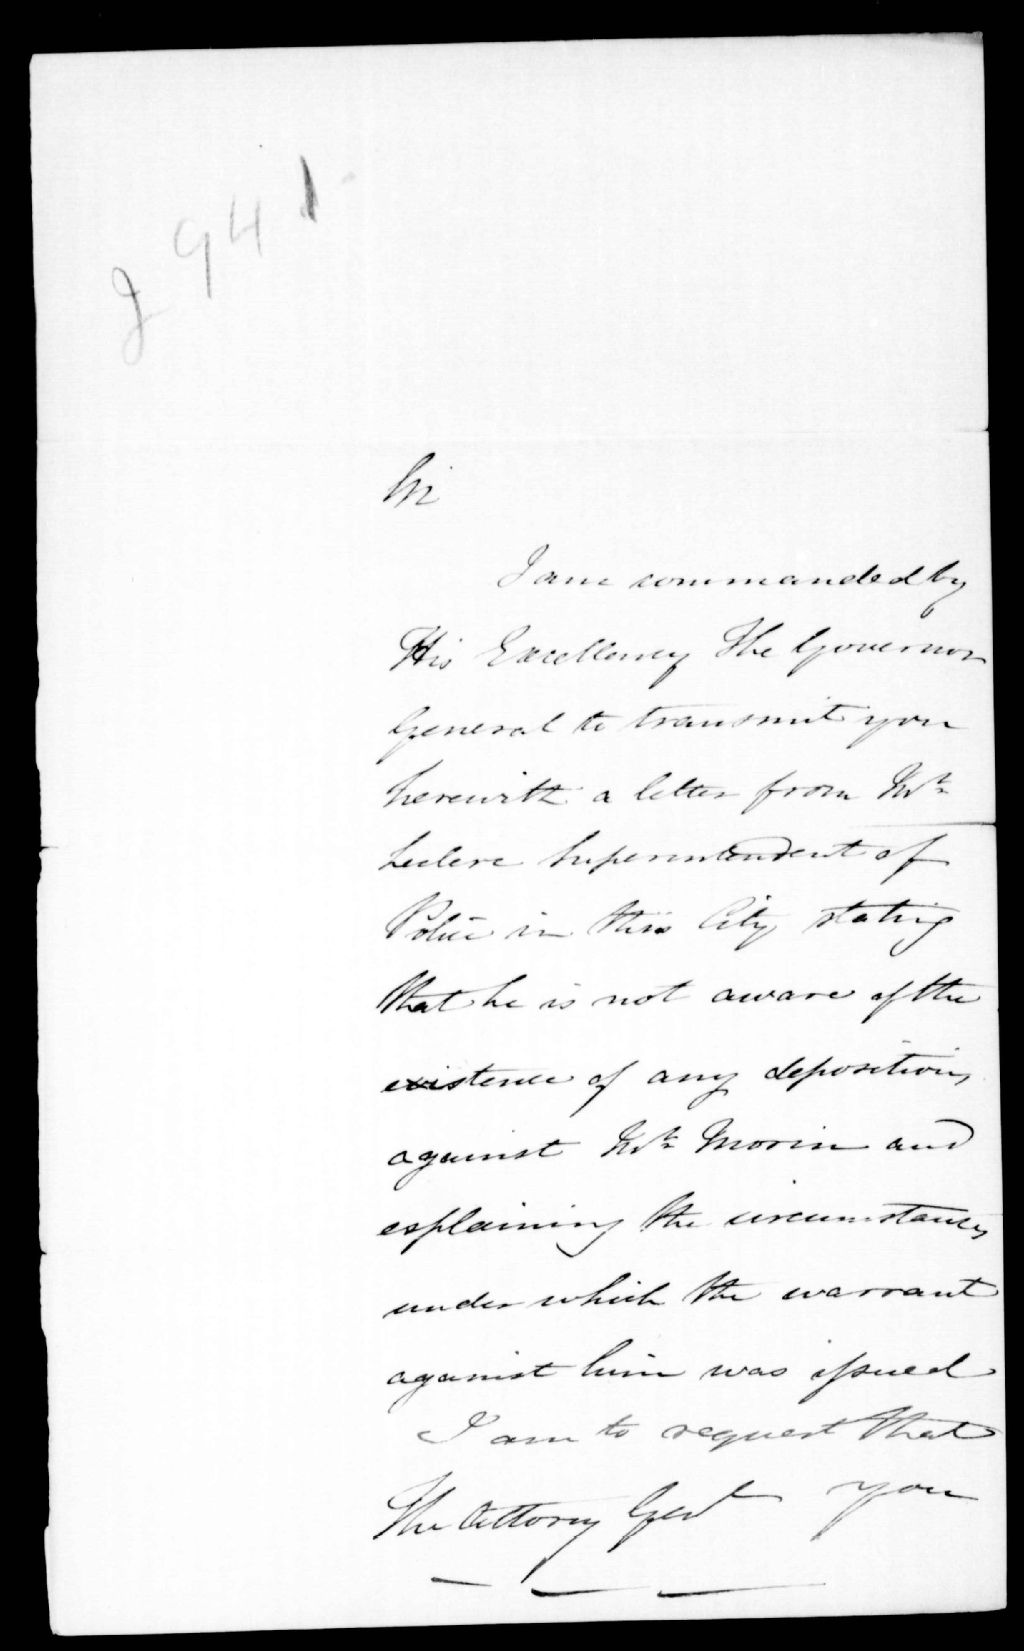 J 941
Sir
I am commanded by
His Excellency The Governor
General to transmit you
herewith a letter from Mr
Leclere Superintendent of
Police in this City stating
that he is not aware of the
existence of any depositions
against Mr Morin and
explaining the circumstances
under which the warrant
against him was issued
I am to request that
you
The Attorney Genl